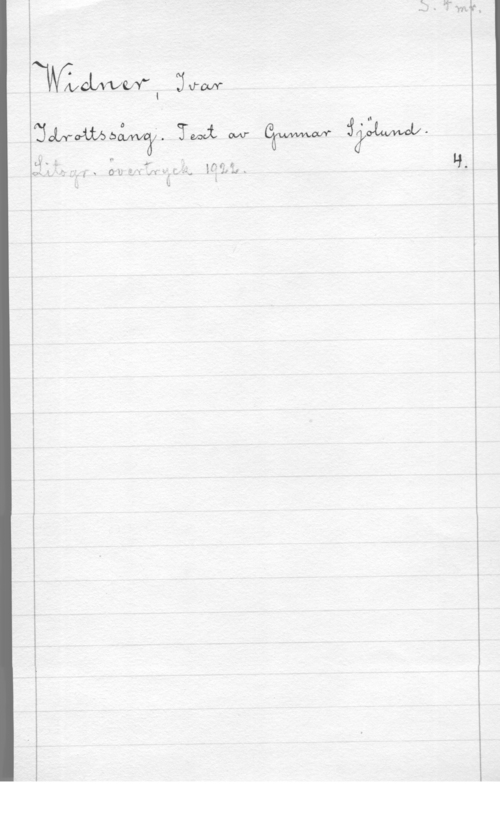 S. 4 mk.
Widner, Ivar
Idrottssång. Text av Gunnar Sjölund.
Litogr. övertryck 1922. 4.